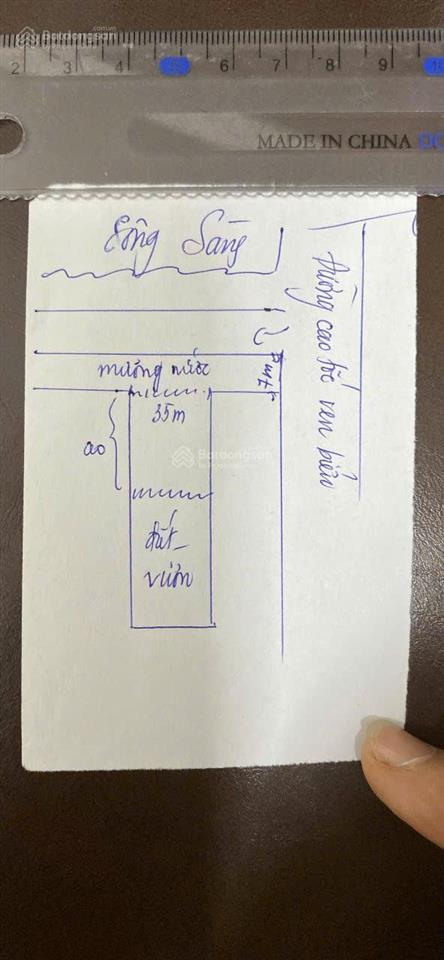 Batdongsan
.com.vn
2 3 4 5 6 7 8 9 10
MADE IN CHINA
Sông Sáng
Đường cao tốc ven biển
mương nước
35m
ao
Batdongsan
đất
vườn